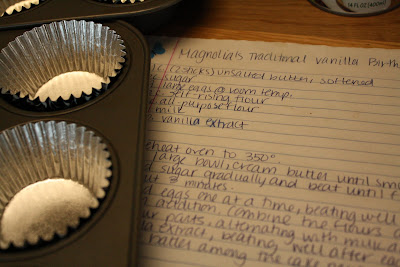 14 FL OZ (
Magnolia's Traditional Vanilla Birth
(2 sticks) unsalted butter, softened
sugar
large eggs @ room temp.
self-rising flour
all-purpose flour
milk
vanilla extract
heat oven to 350°.
large bowl, cream butter until smo
d sugar gradually and beat until f
ut 3 minutes.
d eggs one at a time, beating well
addition. Combine the flours a
ur parts, alternating with milk a
la extract, beating well after ea
batter among the